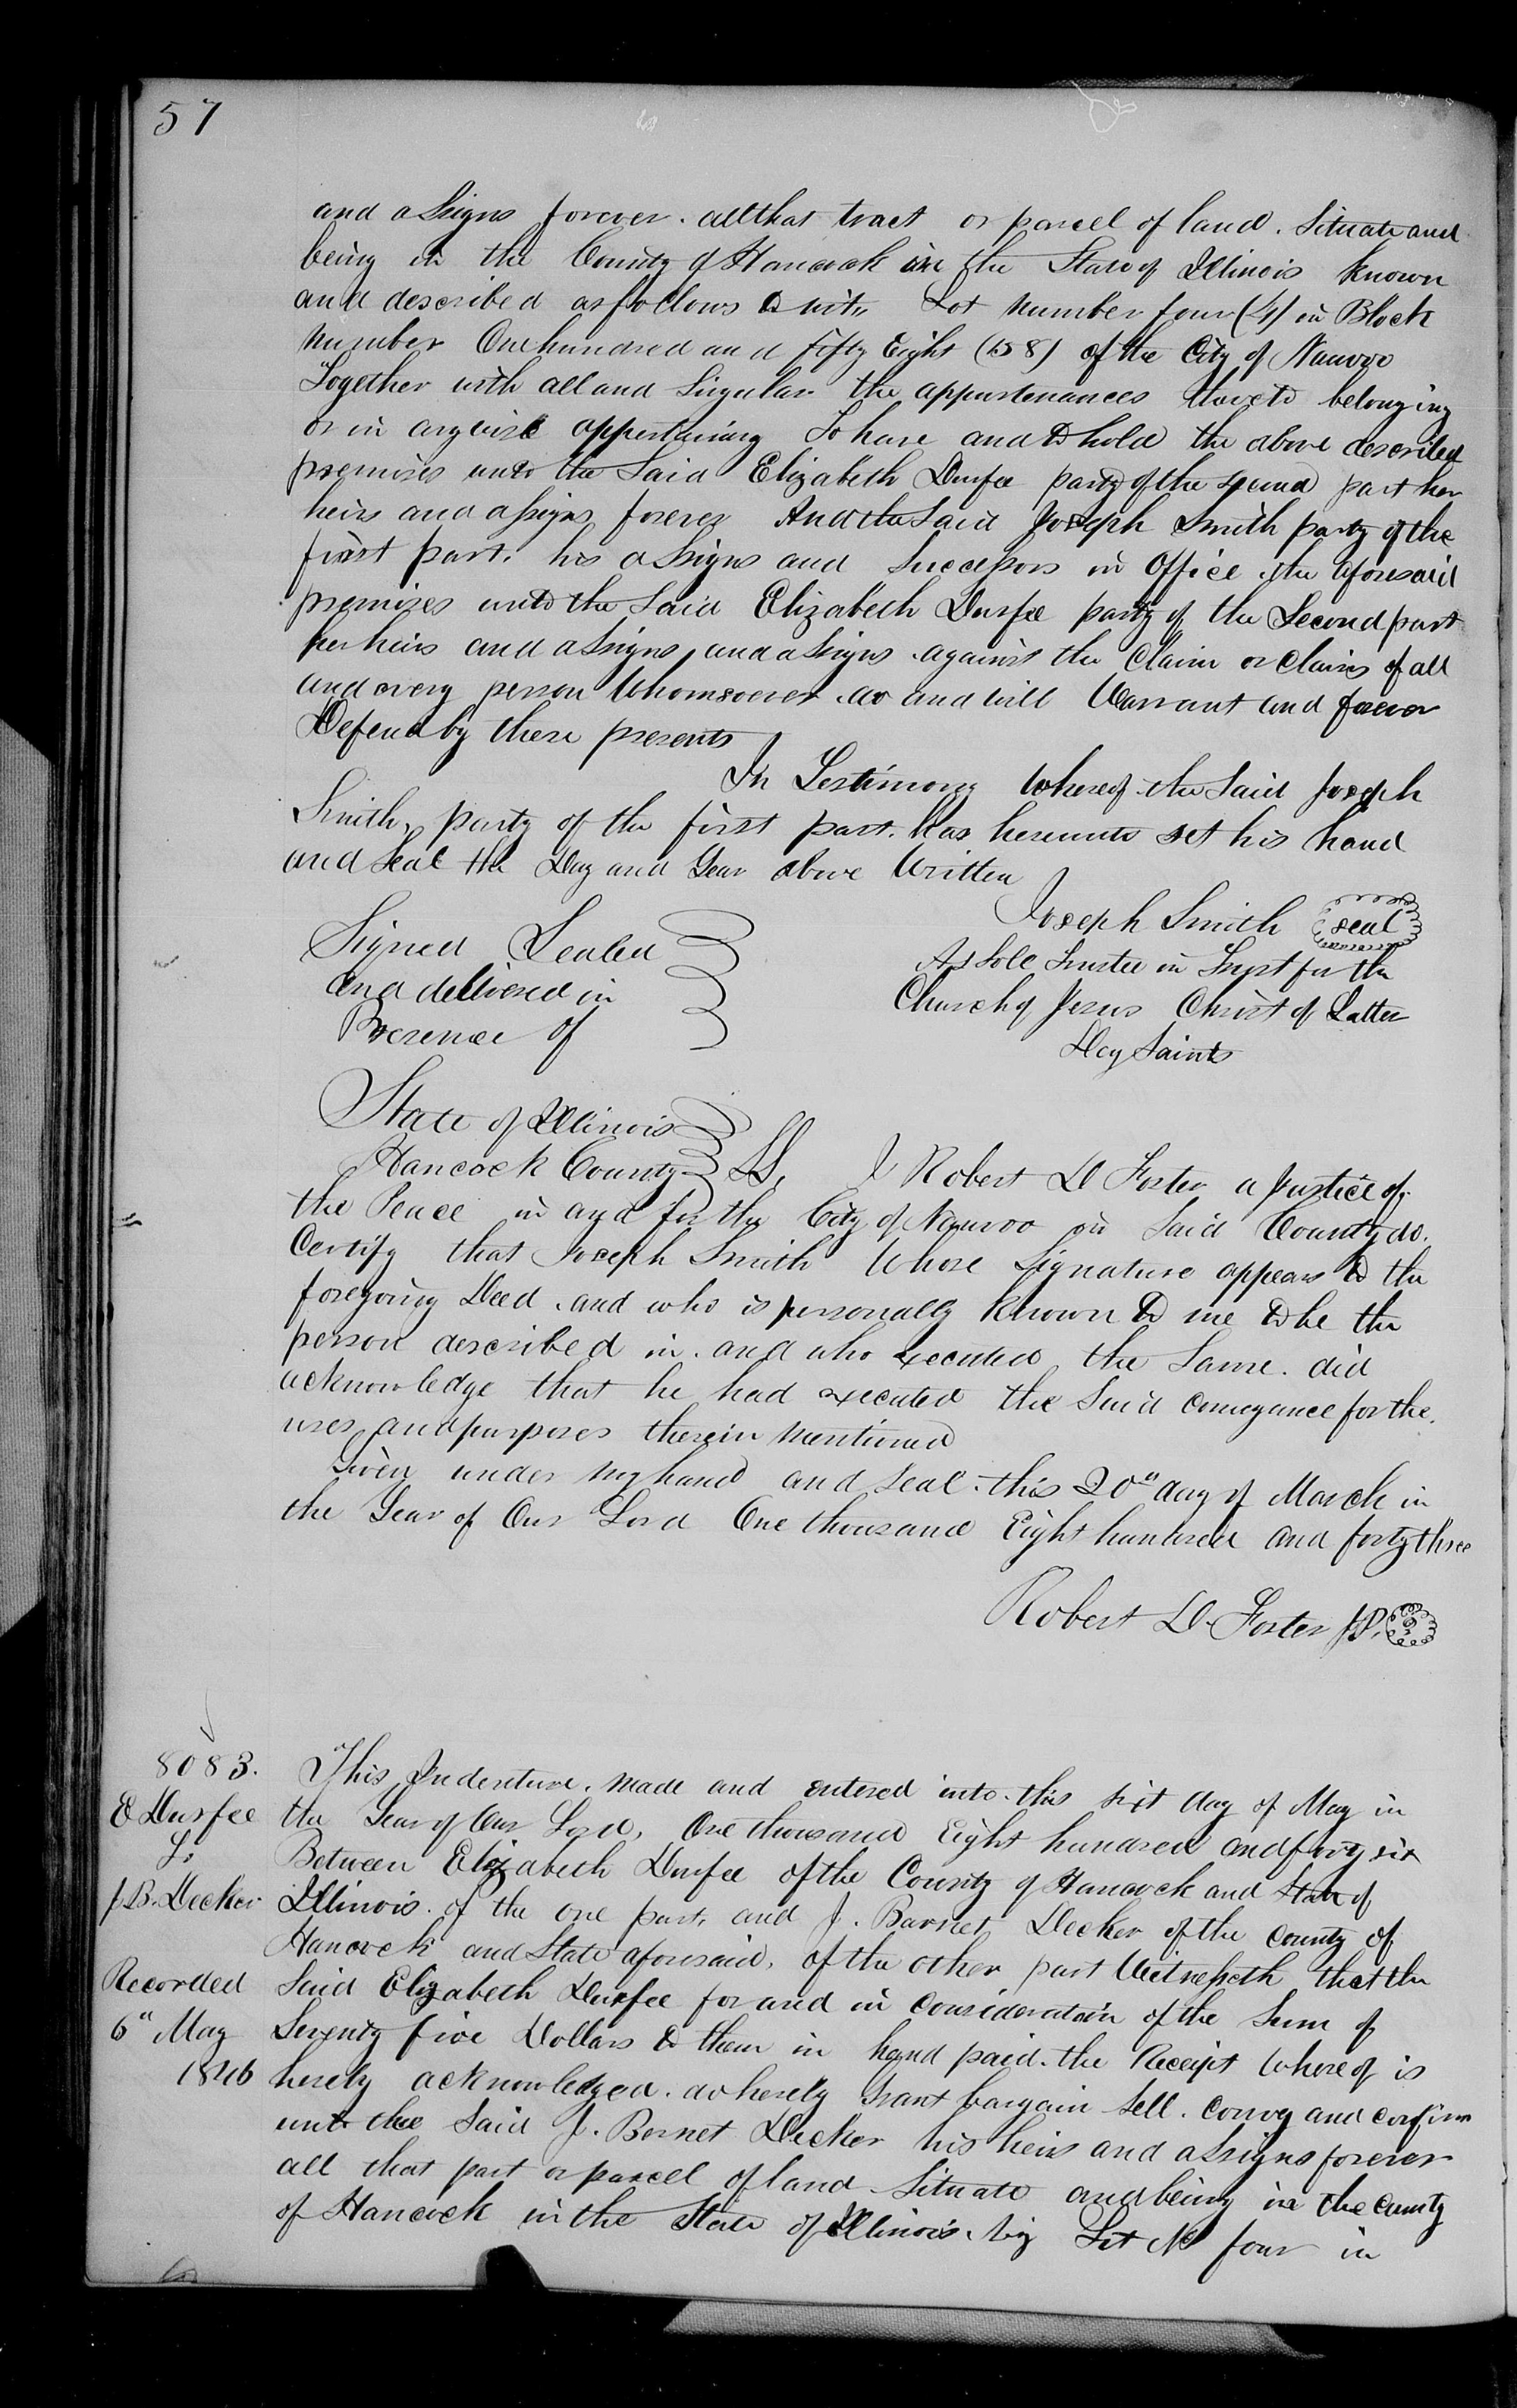 57
and assigns forever. all that tract or parcel of land. Situate and
being in the County of Hancock in the State of Illinois known
and described as follows to wit, Lot number four (4) in Block
number One hundred and fifty Eight (158) of the City of Nauvoo
Together with all and Singular the appurtenances thereto belonging
or in anywise appertaining To have and to hold the above described
premises unto the Said Elizabeth Durfee party of the second part her
heirs and assigns forever And the Said Joseph Smith party of the
first part. his assigns and Successors in Office. the aforesaid
premises unto the Said Elizabeth Durfee party of the Second part
her heirs and assigns, and assigns. against the Claim or Claims of all
and every person Whomsoever. do and will Warrant and forever
Defend by these presents
In Testimony Whereof the Said Joseph
Smith, party of the first part. has hereunto set his hand
and Seal the Day and Year above Written
Joseph Smith seal
Signed Sealed
and delivered in
Presence of
As Sole Trustee in Trust for the
Church of Jesus Christ of Latter
Day Saints
State of Illinois
Hancock County SS, I Robert D Foster a Justice of
the Peace in and for the City of Nauvoo in Said County do.
Certify that Joseph Smith Whose Signature appears to the
foregoing Deed. and who is personally known to me to be the
person described in. and who executed the Same. did
acknowledge that he had executed the Said Conveyance for the.
uses and purposes therein mentioned
Given under my hand and Seal. this 20" day of March in
the Year of Our Lord One thousand Eight hundred and forty three
Robert D. Foster J.P.
8083. This Indenture. made and entered into. this sixt day of May in
E Durfee the Year of Our Lord, One thousand Eight hundred and forty six
Between Elizabeth Durfee of the County of Hancock and State of
J B. Decker Illinois. of the one part, and J. Barnet Decker of the County of
Hancock and State aforesaid, of the other part Witnesseth that the
Recorded Said Elizabeth Durfee for and in Consideration of the Sum of
6" May Seventy five Dollars to them in hand paid. the Receipt Whereof is
1846 hereby acknowledged. do hereby Grant bargain Sell. Convey and confirm
unto the Said J. Bernet Decker his heirs and assigns forever
all that part or parcel of land. Situate and being in the County
of Hancock in the State of Illinois. Lot No four in